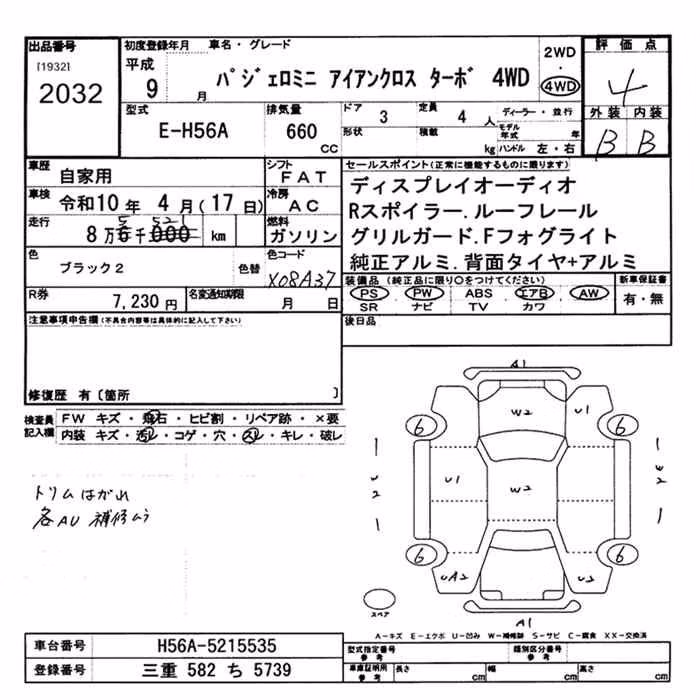 出品番号
[1932]
2032
初度登録年月 車名・グレード
平成
9 月
パジェロミニ アイアンクロス ターボ 4WD
2WD
・
4WD
評価点
4
外装 内装
B B
型式
E-H56A
排気量
660 cc
ドア 3
形状
定員 4 人
積載 kg
ディーラー・並行
モデル年式 年
ハンドル 左・右
車歴 自家用
シフト FAT
車検 令和10年 4月(17日)
冷房 AC
走行 8万6千000 km
5 521
燃料 ガソリン
色 ブラック2 色替
色コード X08A37
R券 7,230円
名変通知期限 月 日
セールスポイント(正常に機能するものに限ります)
ディスプレイオーディオ
Rスポイラー.ルーフレール
グリルガード.Fフォグライト
純正アルミ.背面タイヤ+アルミ
装備品(純正品に限り○をつけてください)
PS・PW・ABS・エアB・AW
SR ナビ TV カワ
新車保証書
有・無
後日品
注意事項申告欄(不具合内容等は具体的に記入して下さい)
修復歴 有〔箇所 〕
検査員記入欄
FW キズ・飛石・ヒビ割・リペア跡・×要
内装 キズ・汚レ・コゲ・穴・スレ・キレ・破レ
トリムはがれ
各AU 補修ムラ
A1
W2 U1
6 6
U1 W2
W2 W2
6 6
UA2 U2
A1
スペア
A-キズ E-エクボ U-凹み W-補修跡 S-サビ C-腐食 XX-交換済
車台番号 H56A-5215535
登録番号 三重 582 ち 5739
型式指定番号 参考
類別区分番号 参考
車庫証明用 参考
長さ cm 幅 cm 高さ cm